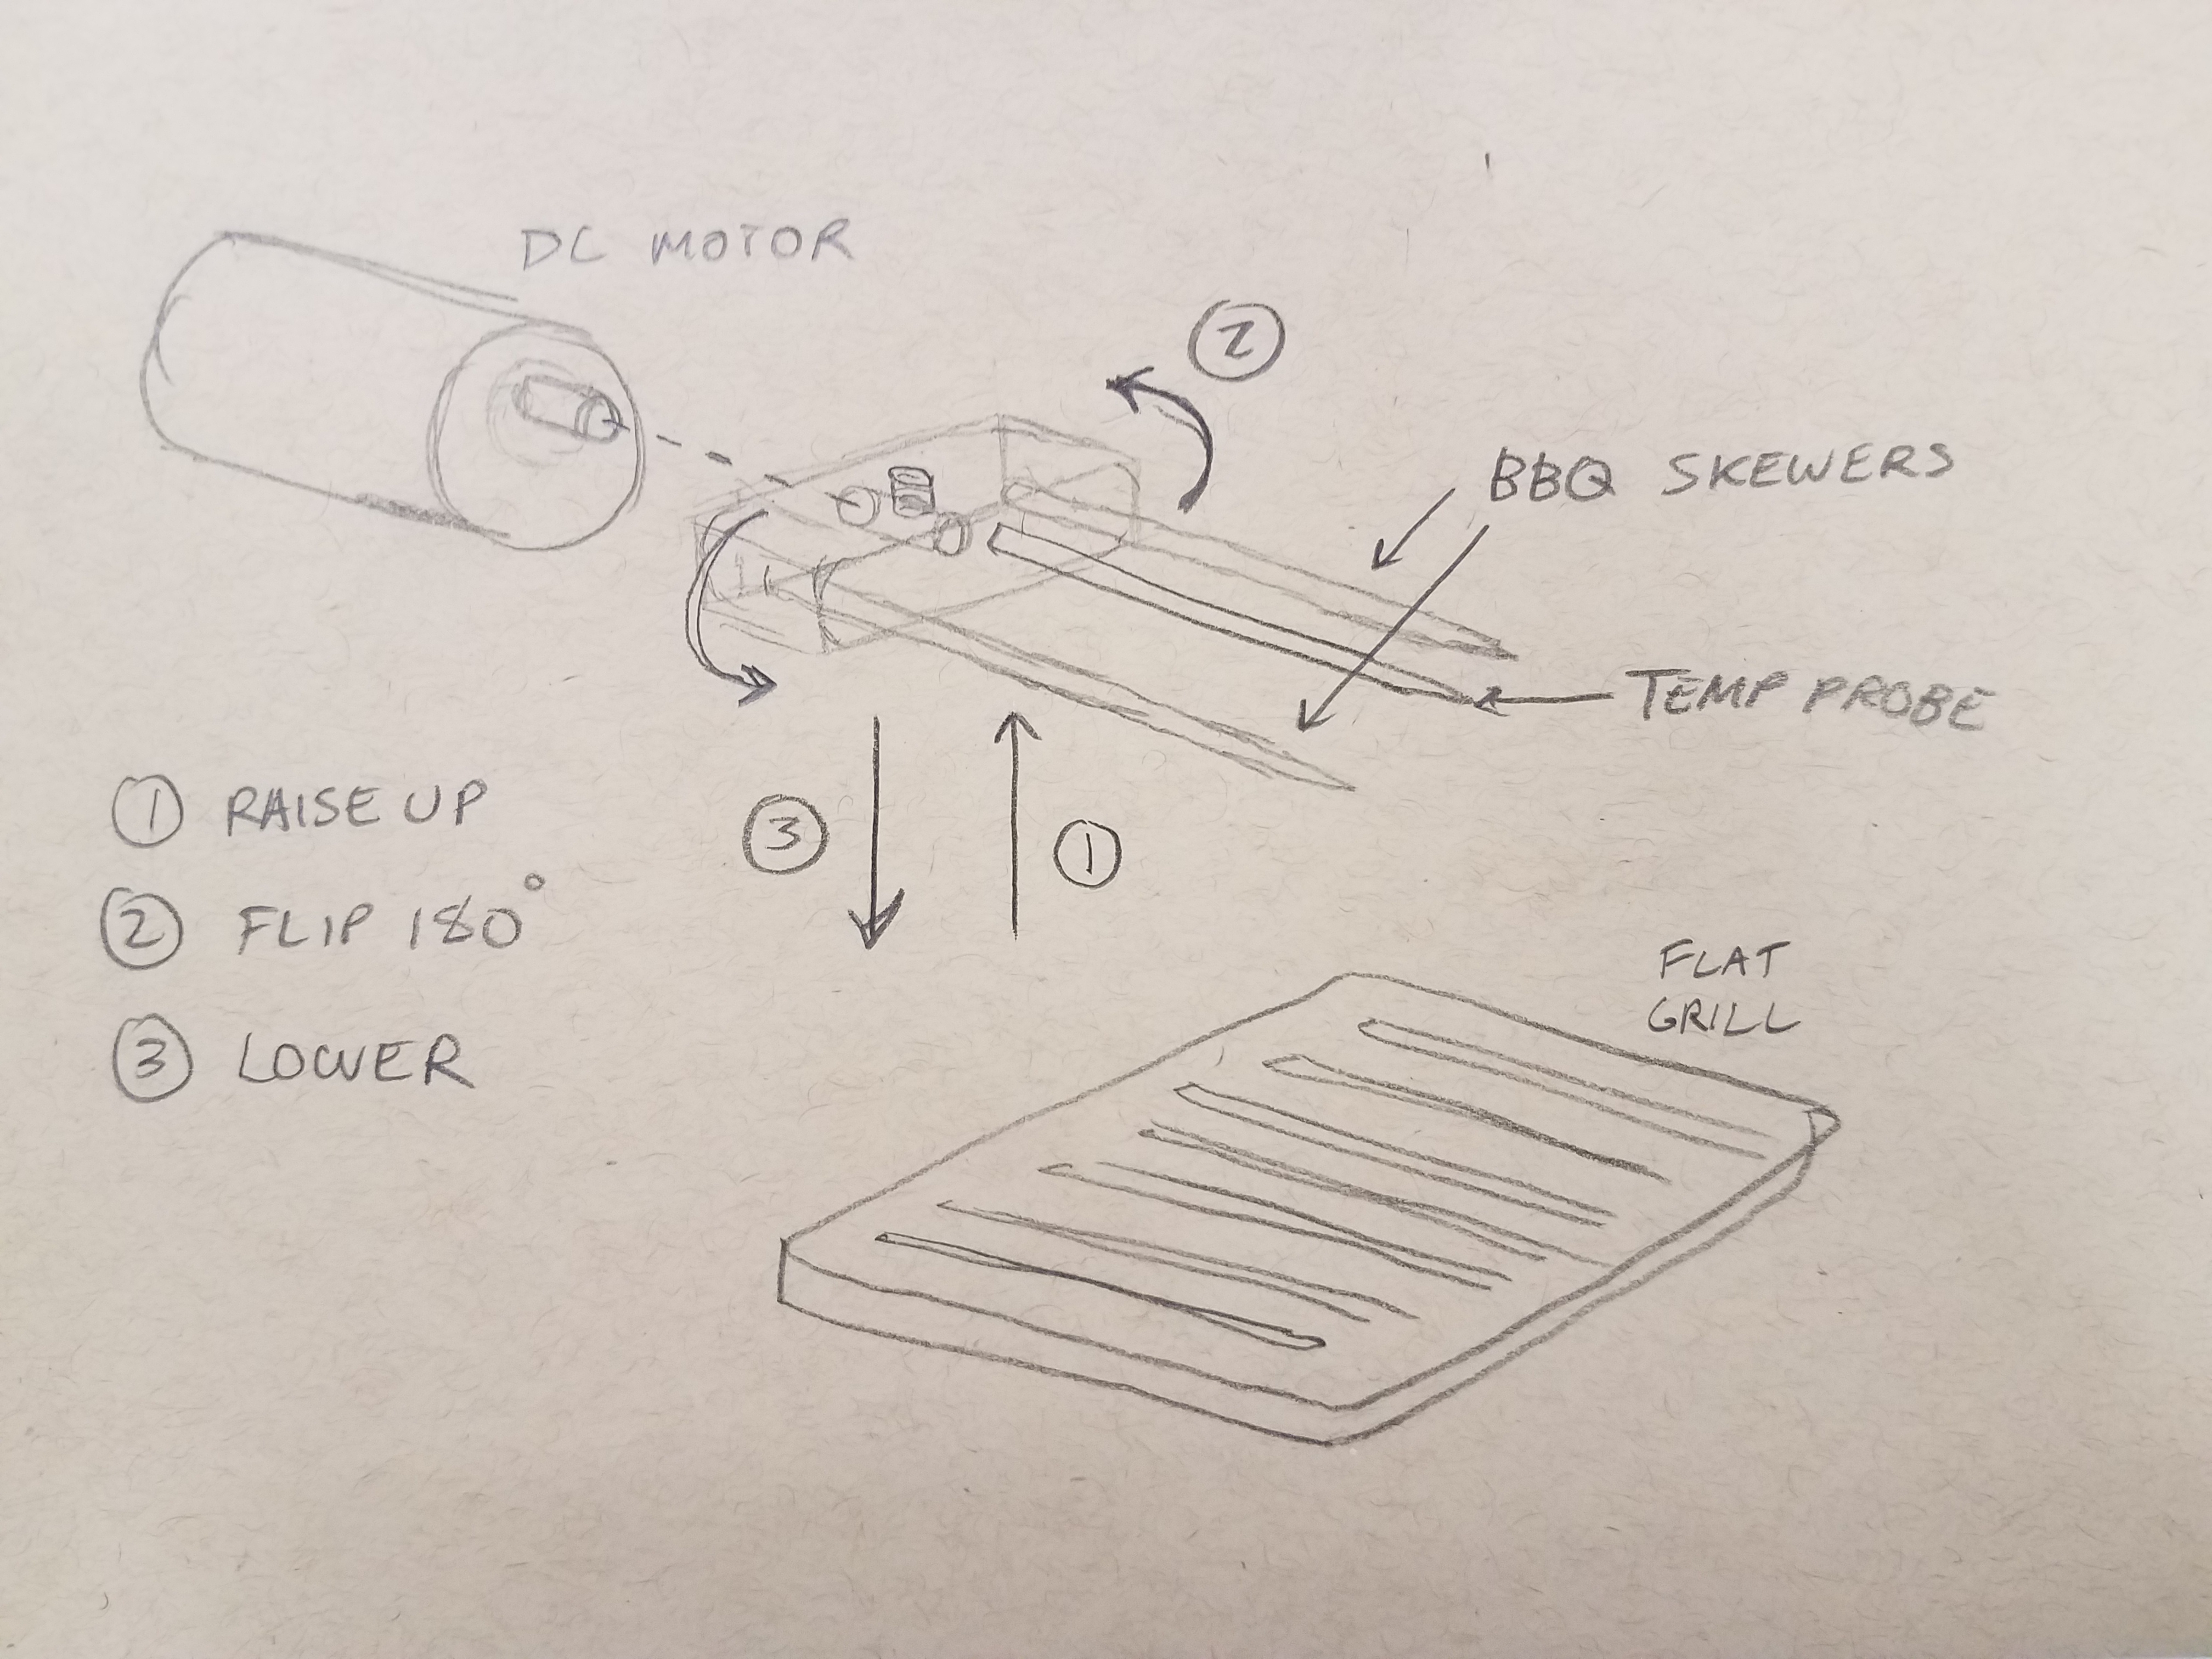 DC MOTOR
2
BBQ SKEWERS
TEMP PROBE
1 RAISE UP
3
1
2 FLIP 180°
3 LOWER
FLAT
GRILL